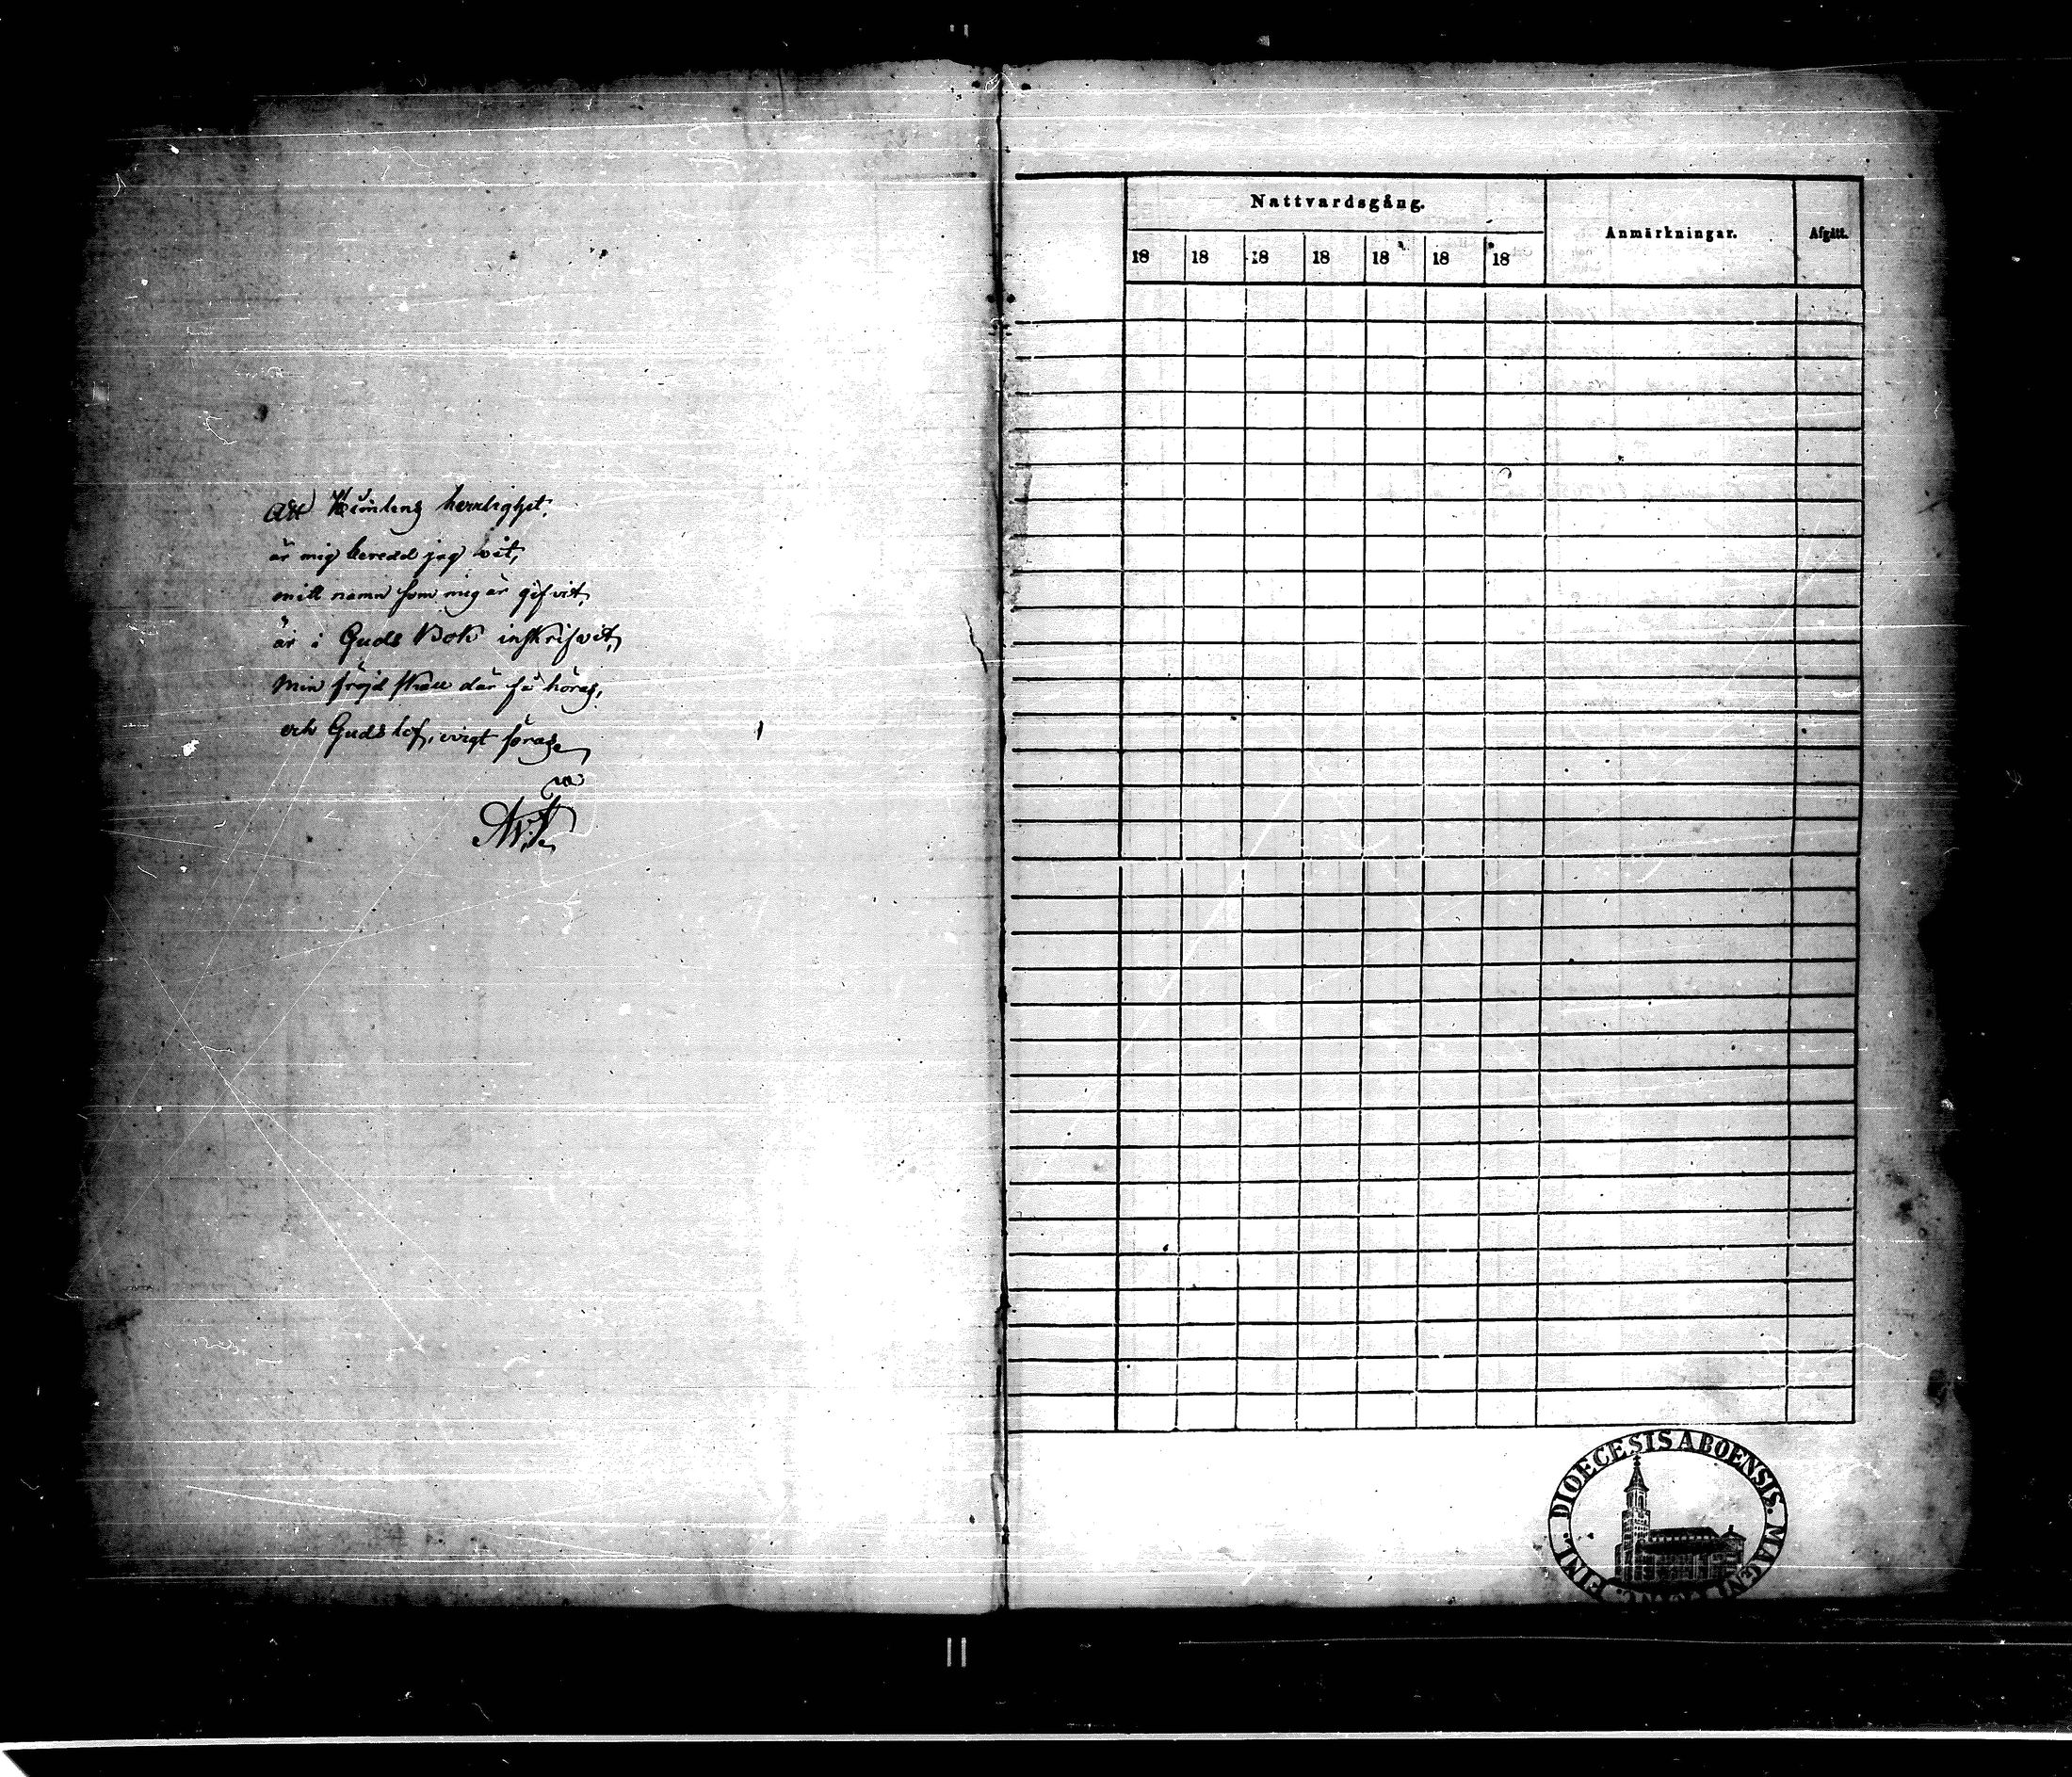 Att Himlens herrlighet,
är mig beredd jag vet,
mitt namn som mig är gifvet,
är i Guds Bok inskrifvit,
Min fröjd skall där få höras,
och Guds lof, evigt föras
Nattvardsgång.
Anmärkningar.
Afgått.
18 18 18 18 18 18 18
DIOECESIS ABOENSIS. MAGNI
FINL.